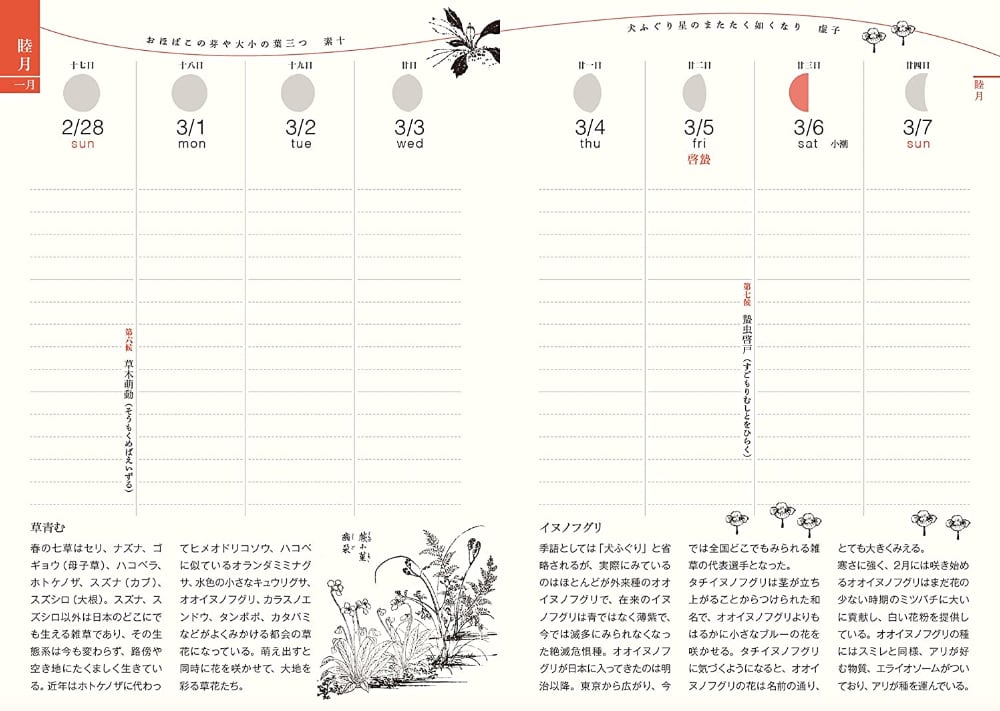 睦月
一月
おほばこの芽や大小の葉三つ 素十
十七日
2/28
sun
十八日
3/1
mon
十九日
3/2
tue
廿日
3/3
wed
第六候 草木萌動(そうもくめばえいずる)
草青む
春の七草はセリ、ナズナ、ゴ
ギョウ(母子草)、ハコベラ、
ホトケノザ、スズナ(カブ)、
スズシロ(大根)。スズナ、ス
ズシロ以外は日本のどこにで
も生える雑草であり、その生
態系は今も変わらず、路傍や
空き地にたくましく生きてい
る。近年はホトケノザに代わっ
てヒメオドリコソウ、ハコベ
に似ているオランダミミナグ
サ、水色の小さなキュウリグサ、
オオイヌノフグリ、カラスノエ
ンドウ、タンポポ、カタバミ
などがよくみかける都会の草
花になっている。萌え出すと
同時に花を咲かせて、大地を
彩る草花たち。
犬ふぐり星のまたたく如くなり 虚子
廿一日
3/4
thu
廿二日
3/5
fri
啓蟄
廿三日
3/6
sat 小潮
廿四日
3/7
sun
睦月
第七候 蟄虫啓戸(すごもりむしとをひらく)
イヌノフグリ
季語としては「犬ふぐり」と省
略されるが、実際にみている
のはほとんどが外来種のオオ
イヌノフグリで、在来のイヌ
ノフグリは青ではなく薄紫で、
今では滅多にみられなくなっ
た絶滅危惧種。オオイヌノフ
グリが日本に入ってきたのは明
治以降。東京から広がり、今
では全国どこでもみられる雑
草の代表選手となった。
タチイヌノフグリは茎が立ち
上がることからつけられた和
名で、オオイヌノフグリよりも
はるかに小さなブルーの花を
咲かせる。タチイヌノフグリ
に気づくようになると、オオイ
ヌノフグリの花は名前の通り、
とても大きくみえる。
寒さに強く、2月には咲き始め
るオオイヌノフグリはまだ花の
少ない時期のミツバチに大い
に貢献し、白い花粉を提供し
ている。オオイヌノフグリの種
にはスミレと同様、アリが好
む物質、エライオソームがつい
ており、アリが種を運んでいる。